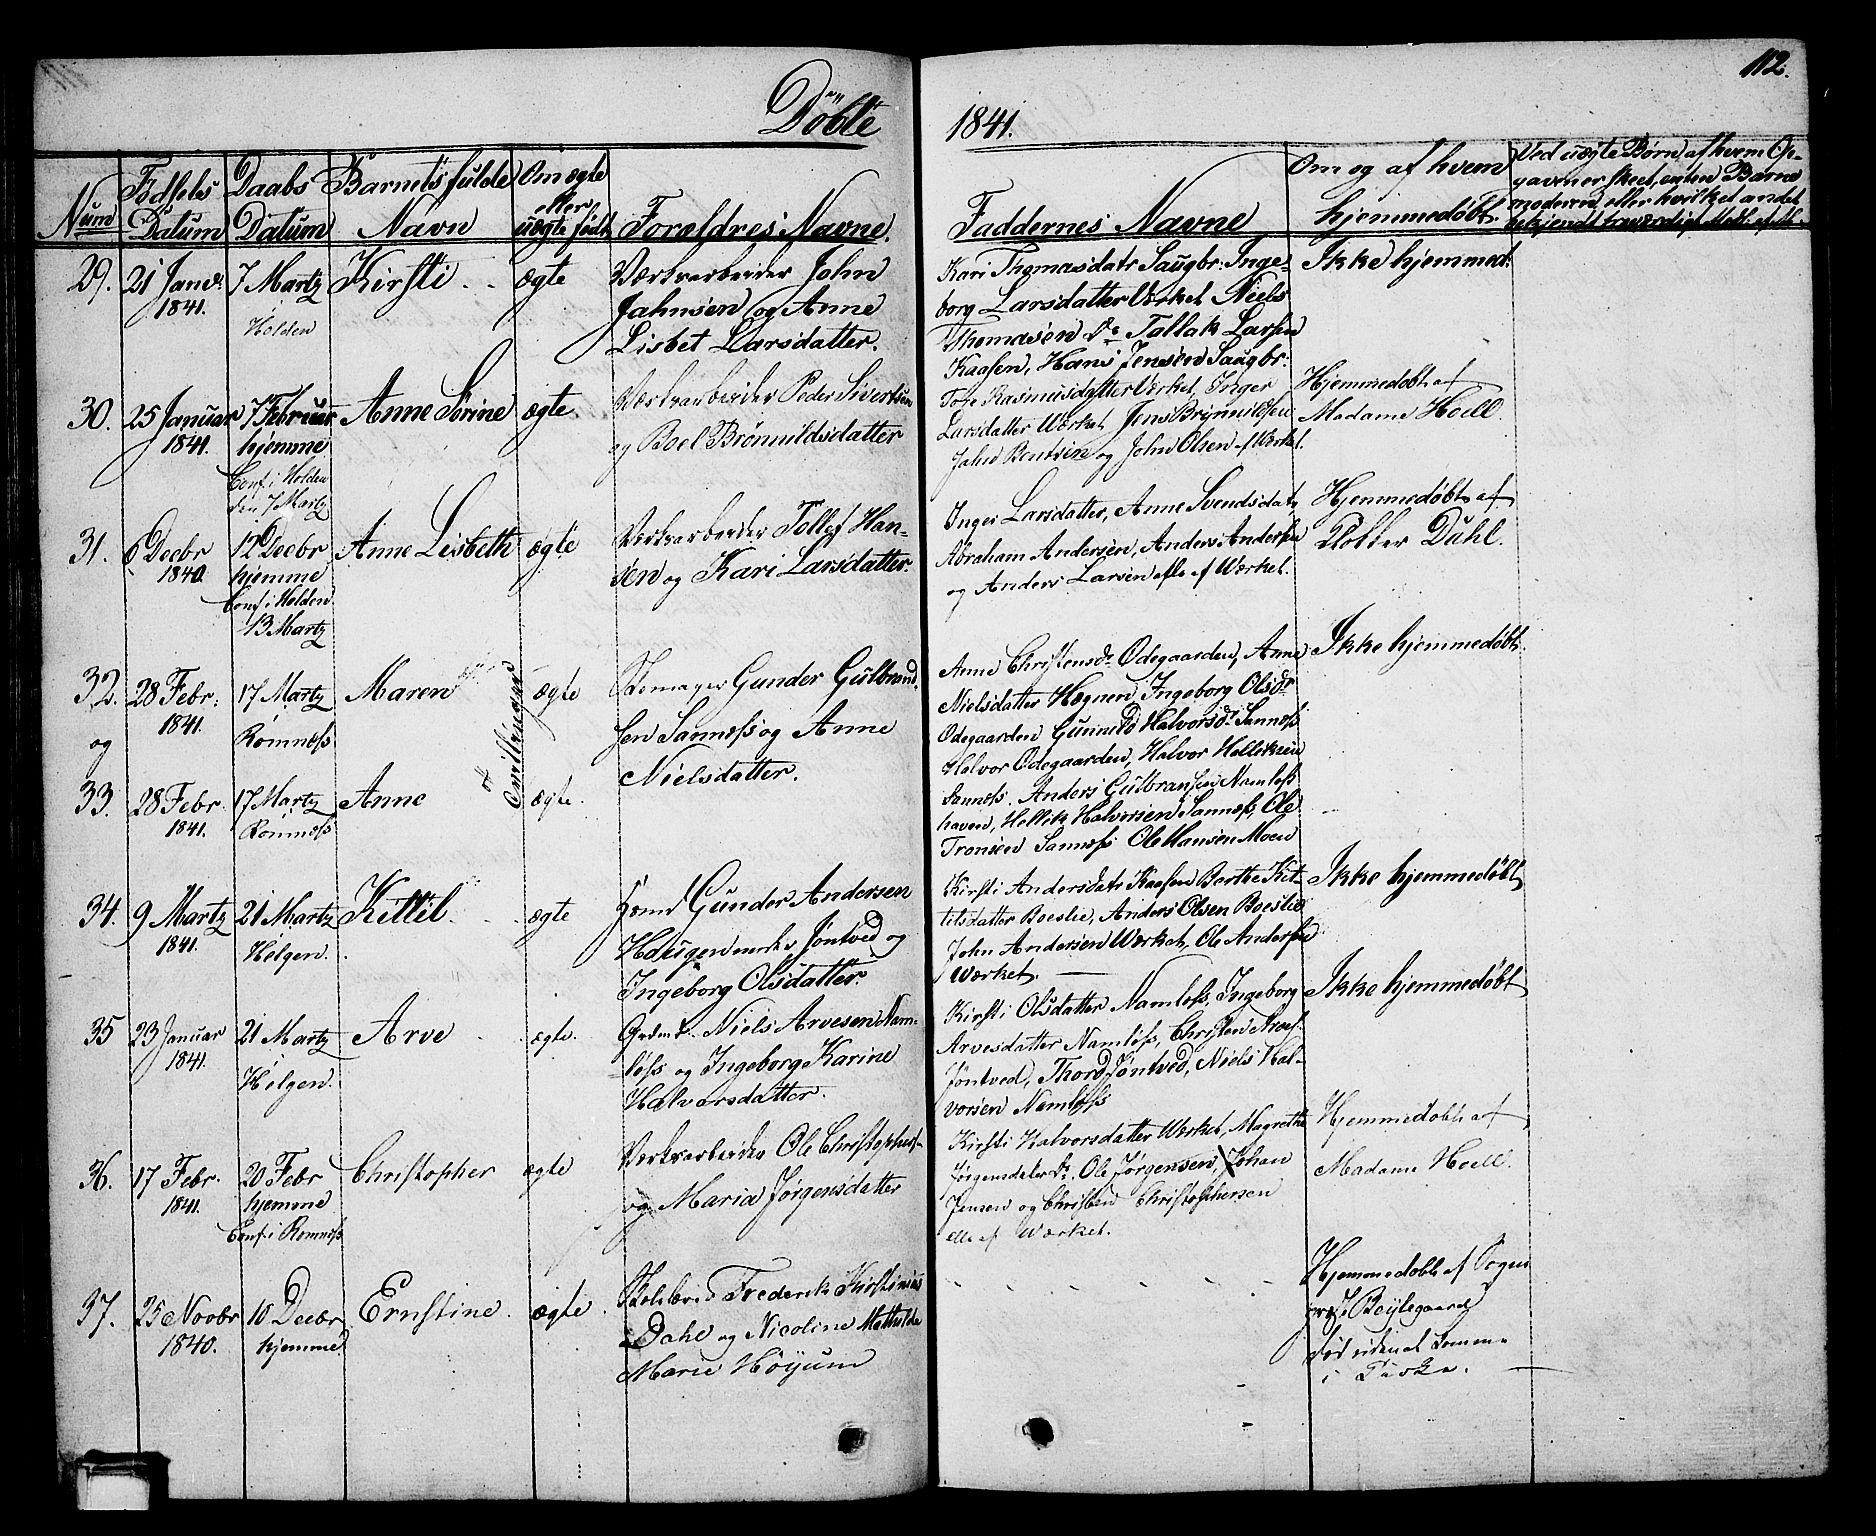 112.
Döbte 1841.
Num
Fødsels Datum
Daabs Datum
Barnets fulde Navn
Om ægte eller uægte født
Forældres Navne.
Faddernes Navne
Om og af hvem hjemmedøbt.
Ved uægte Børn af hvem Op-
gaven er skeet, enten Barne
moderen eller hvilket andet
bekjendt troværdigt
29. 21 Janr. 1841. 7 Martz Holden
Kirsti
ægte
Værksarbeider John
Jahnsen og Anne
Lisbet Larsdatter.
Kari Thomasdatr Saugbr: Inge-
borg Larsdatter Værket Niels
Thomasen Do Tollak Larsen
Kaasen, Hans Jensen Saugbr:
Ikke hjemmed:
30. 25 Januar 1841. 7 Februar hjemme
Conf. i Holden
den 7 Martz
Anne Sørine
ægte.
Værksarbeider Peder Sivertsen
og Boel Brønnildsdatter
Tore Rasmusdatter Værket, Inger
Larsdatter Værket, Jens Brynnildsen
Jahn Bentsen og John Olsen af Værket.
Hjemmedøbt af
Madame Hoell.
31. 6 Decbr 1840. 12 Decbr hjemme
Conf. i Holden
13 Martz
Anne Lisbeth
ægte
Værksarbeider Tollef Han-
sen og Kari Larsdatter.
Inger Larsdatter, Anne Svendsdat,
Abraham Andersen, Anders Andersen
og Anders Larsen alle af Værket.
Hjemmedøbt af
Klokker Dahl.
32. 28 Febr: 1841. 17 Martz Romnæss
Maren
ægte
og
33. 28 Febr. 1841. 17 Martz Romnæss
Anne
ægte.
er Tvillinger
Skomager Gunder Gulbrand-
sen Sannæss og Anne
Nielsdatter.
Anne Christensdr Odegaarden, Anne
Nielsdatter Hægnen, Ingeborg Olsdr
Odegaarden Gunnild Halvorsdr Sannæss
Halvor Odegaarden, Halvor Helliksen
Sannæss. Anders Gulbransen Namløss
haven, Hellik Halvorsen Sannæss, Ole
Tronsen Sannæss Ole Hansen Moen
Ikke hjemmedøbt.
34. 9 Martz 1841. 21 Martz Helgen.
Kittil.
ægte
Gunder Andersen
Haugen Jøntved og
Ingeborg Olsdatter.
Kirsti Andersdatr Kaasen Berthe Kit-
tilsdatter Boeslie, Anders Olsen Boeslie
John Andersen Værket, Ole Andersen
Værket.
Ikke hjemmedøbt
35 23 Januar 1841. 21 Martz Helgen.
Arve
ægte.
Niels Arvesen Nam-
løss og Ingeborg Karine
Halvorsdatter.
Kirsti Olsdatter Namløss, Ingeborg
Arvesdatter Namløss, Christen Arves.
Jøntved, Thord Jøntved, Niels Hal-
vorsen Namløss
Ikke hjemmedøbt
36. 17 Febr. 1841. 20 Febr hjemme
Conf. i Romnæss
Christopher
ægte
Værksarbeider Ole Christophers-
og Maria Jørgensdatter
Kirsti Halvorsdatter Værket, Magrethe
Jørgensdater Do. Ole Jørgensen, Johan
Jensen og Christen Christophersen
alle af Værket.
Hjemmedøbt af
Madame Hoell.
37. 25 Novbr 1840. 10 Decbr hjemme.
Ernstine.
ægte.
Frederik Kirstinius
Dahl og Nicoline Mathilde
Marie Höyum
Hjemmedøbt af Sogne
Beylegaard
død uden at komme
i Kirke.